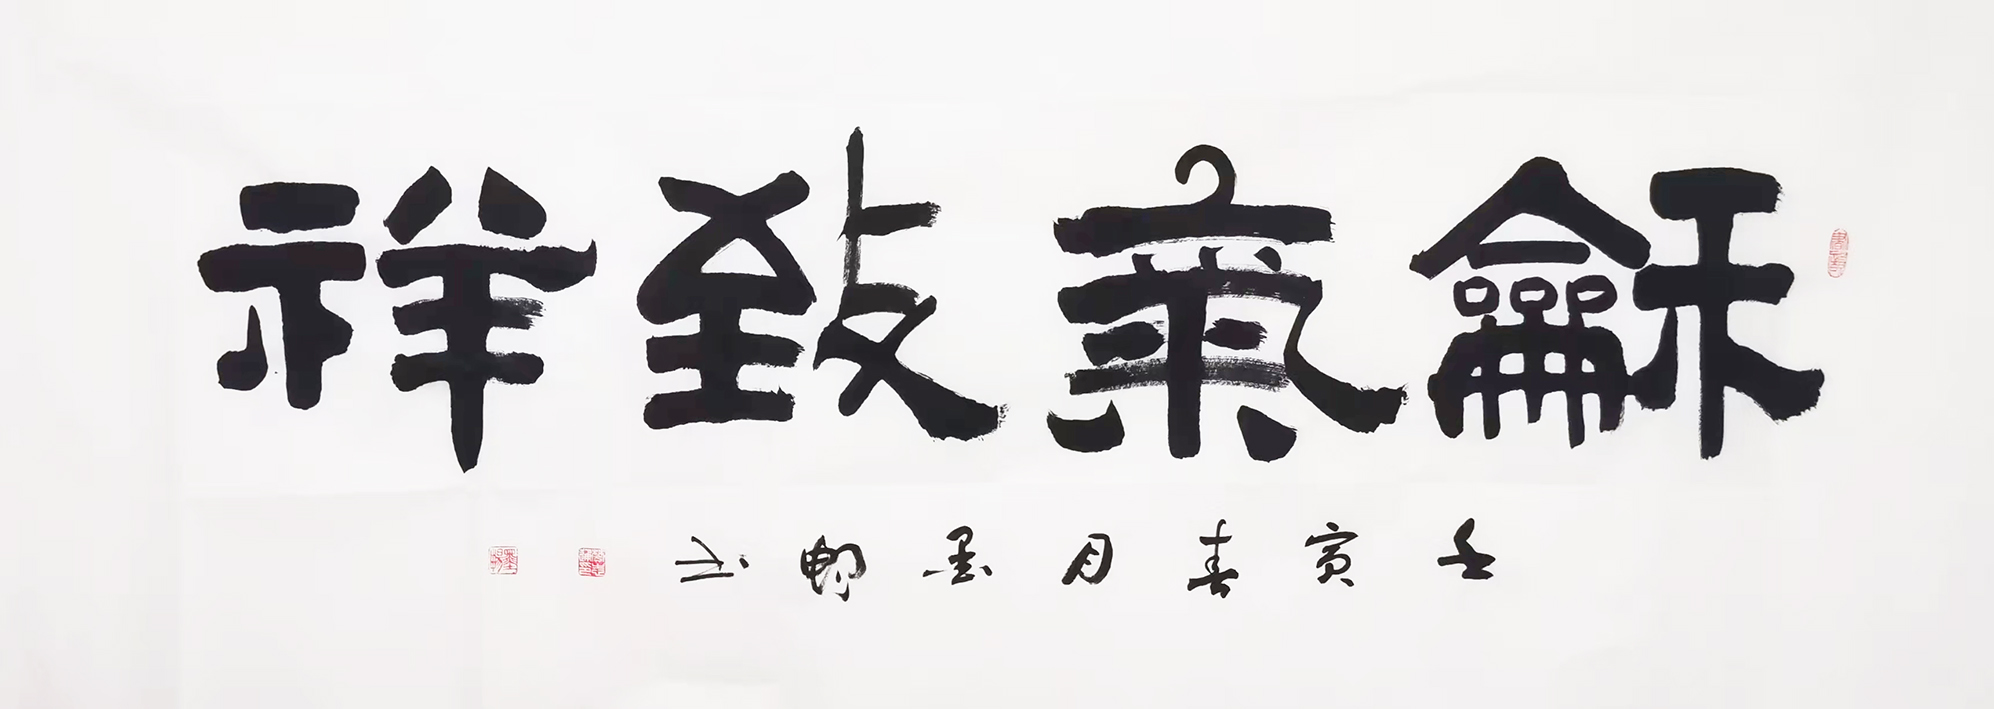 龢氣致祥
壬寅春月墨书